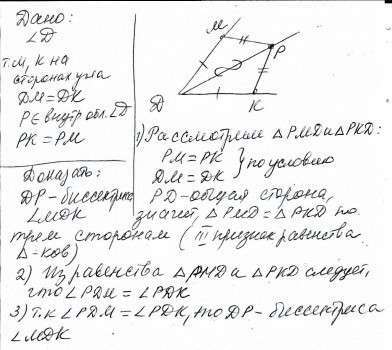 Дано:
∠D
т. М, К на
сторонах угла
DM = DK
P ∈ внутр обл. ∠D
PK = PM
Доказать:
DP - биссектриса
∠MDK
M
P
D
K
1) Рассмотрим △PMD и △PKD:
PM = PK
DM = DK } по условию
PD - общая сторона,
значит, △PMD = △PKD по
трем сторонам (III признак равенства
△-ков)
2) Из равенства △PMD и △PKD следует,
что ∠PDM = ∠PDK
3) т.к ∠PDM = ∠PDK, то DP - биссектриса
∠MDK